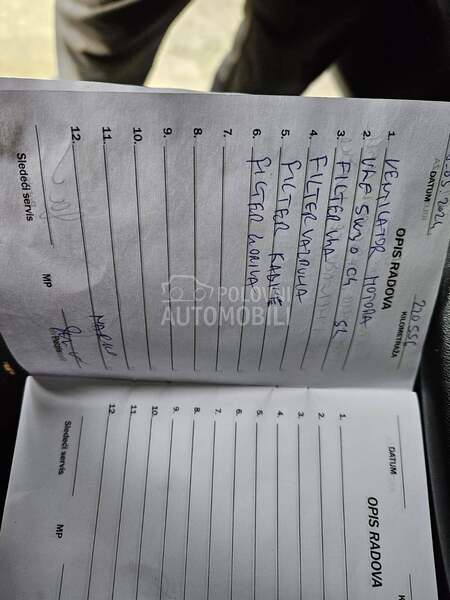 05.2024
DATUM
220556
KILOMETRAŽA
OPIS RADOVA
1. VENTILATOR MOTORA
2. ULJE 5W30 C4 5L
3. FILTER ULJA
4. FILTER VAZDUHA
5. FILTER KABINE
6. FILTER GORIVA
7.
8.
9.
10.
11.
12.
Sledeći servis
MP
POLOVNI
AUTOMOBILI
DATUM
OPIS RADOVA
1.
2.
3.
4.
5.
6.
7.
8.
9.
10.
11.
12.
Sledeći servis
MP